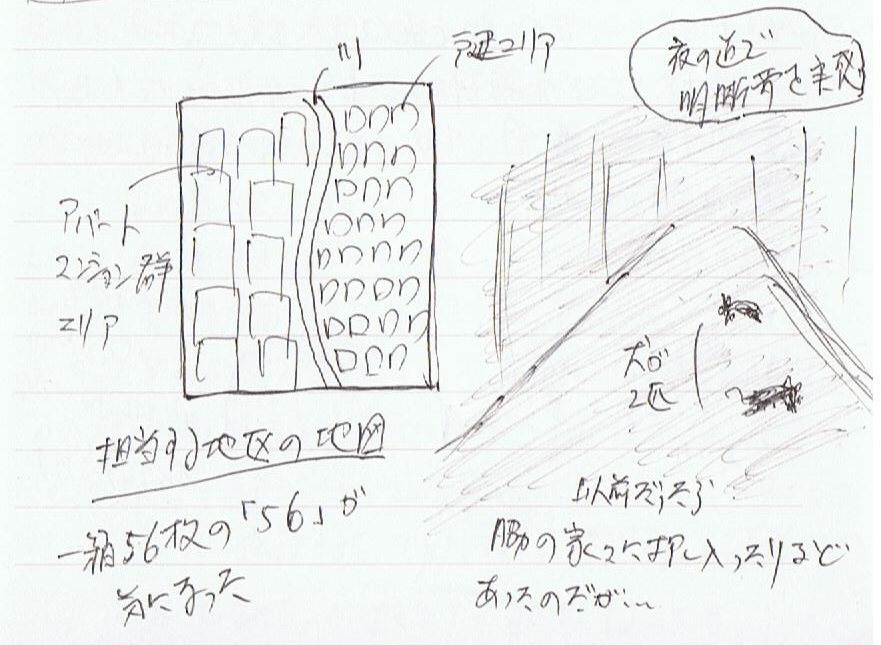 川
戸建エリア
アパート
マンション群
エリア
担当する地区の地図
一箱56枚の「56」が
気になった
夜の道で
明晰夢を実感
犬が
2匹
以前だったら
脇の家々に押し入ったりなど
あったのだが…